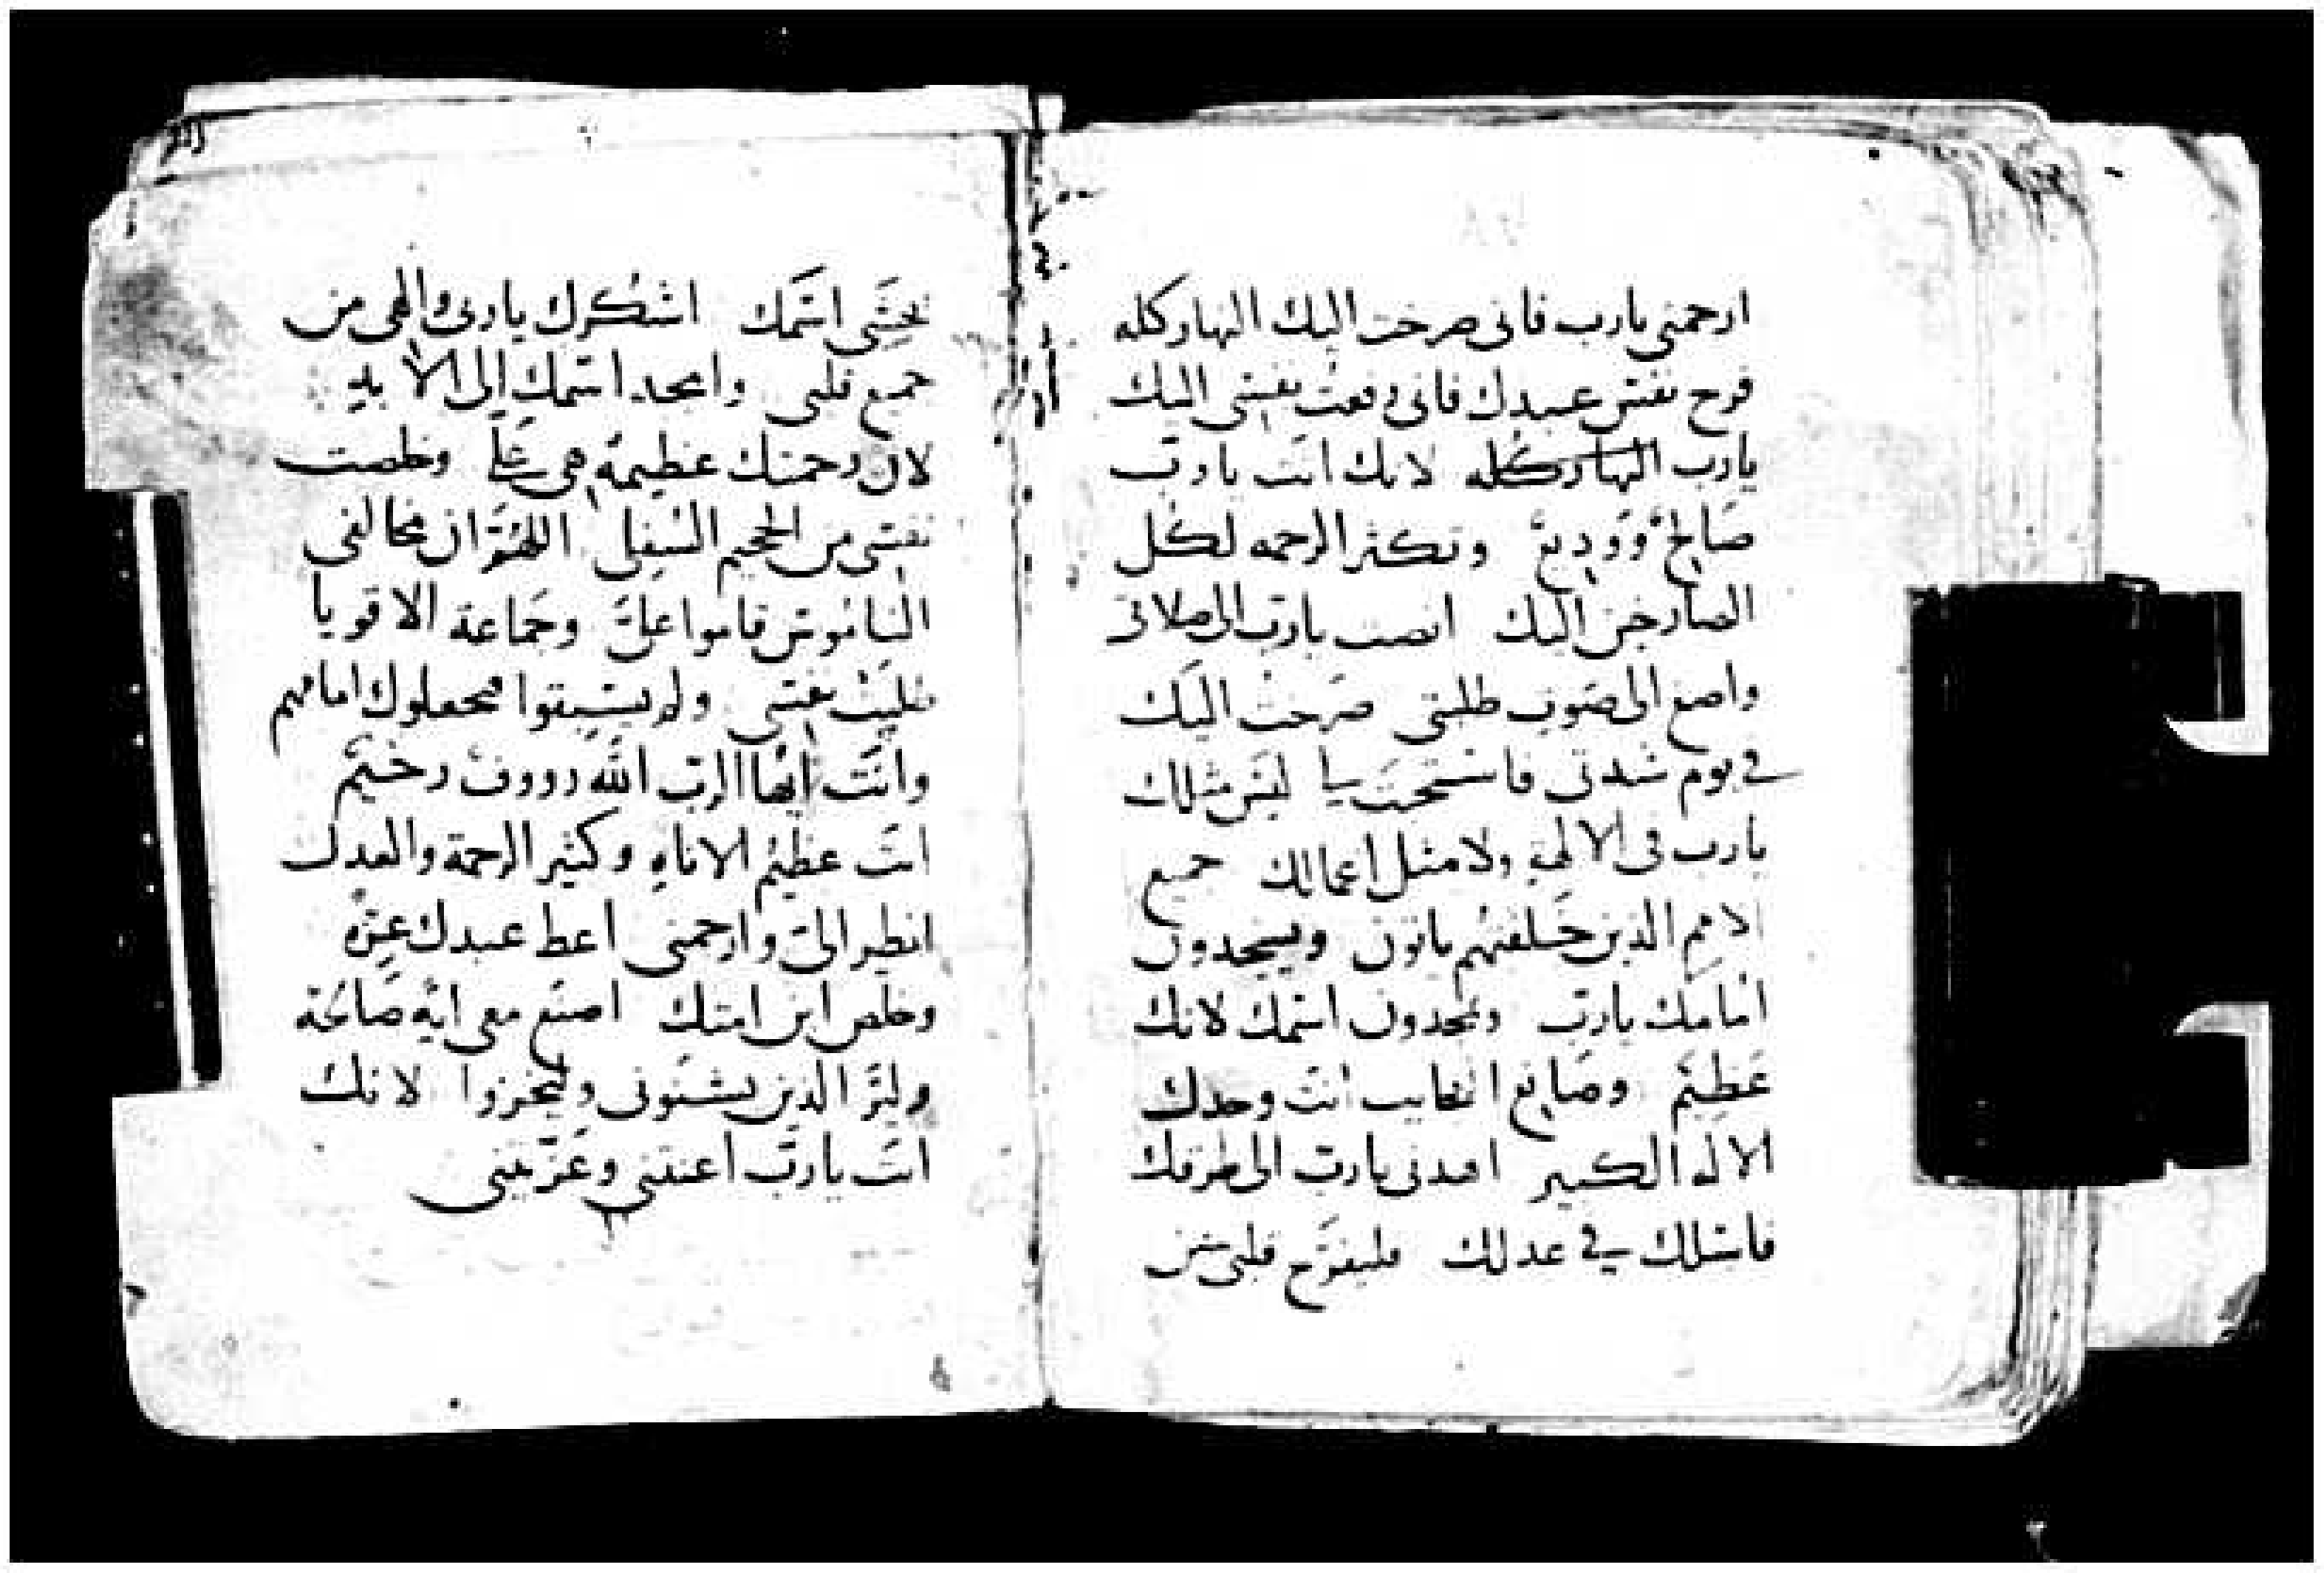 ارحمني يارب فاني صرخت اليك النهار كله
فرح نفس عبدك فاني رفعت نفسي اليك
يارب النهار كله لانك انت يارب
صَالح وَوَديع وتكثر الرحمه لكل
الصارخين اليك انصت يارب الى صلاتي
واصغ الى صَوت طلبتي صرَخت اليَك
في يوم شدتي فاستجبت لي ليسَ مثلك
يارب في الالهه ولا مثل اعمالك جميع
الامم الذين خَلقتهم ياتون ويسجدون
امامك يارب ويمجدون اسمك لانك
عَظيم وصَانع العجايب انت وحدك
الاله الكبير اهدني يارب الى طرقك
فاسلك في عدلك فليفرَح قلبي حين
يخشى اسمك اشكرك يا ربي والهي من
جميع قلبي وامجد اسمك الى الابد
لان رحمتك عظيمة هي عَليّ وخلصت
نفسي من الجحيم السفلى اللهمّ ان مخالفي
الناموس قاموا عليّ وجَماعة الاقويا
طلبَت نفسي ولم يسبقوا فيجعلوك امامهم
وانت ايها الرب الله رووف رحيم
انتَ عظيم الاناه وكثير الرحمة والعدل
انظر اليّ وارحمني اعط عبدك عزه
وخلص ابن امتك اصنع معي ايه صَالحَة
وليرَ الذين يشنوني وليخزوا لانك
انتَ ياربّ اعنتني وعَزّيتني